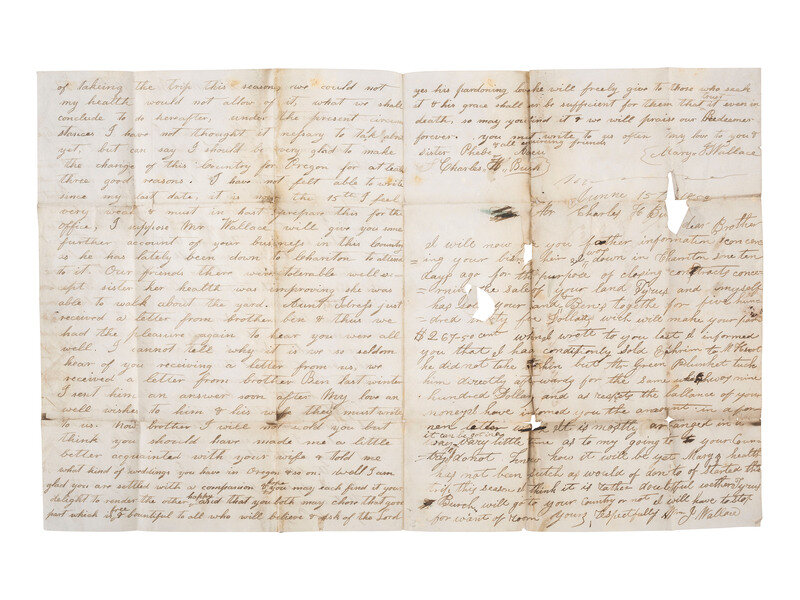 of takeing the trip this season we could not
my health would not allow of it, what we shall
conclude to do hereafter, under the present circum
stances I have not thought it nessary to talk about
yet, but can say I should be very glad to make
the change of this Country for Oregon for at least
three good reasons. I have not felt able to write
since my last date, it is now the 15th I feel
very weak & must in hast prepare this for the
office, I suppose Mr Wallace will give you some
further account of your business in this Country
as he has lately been down to Chariton to attend
to it. Our friends there were tolerable well ex-
cept sister her health was improving she was
able to walk about the yard. Aunt just
received a letter from brother Ben & thus we
had the pleasure again to hear you were all
well. I cannot tell why it is we so seldom
hear of you receiving a letter from us, we
received a letter from brother Ben last winter
I sent him an answer soon after. My love an
well wishes to him & his wife they must write
to us. Now brother I will not scold you but
think you should have made me a little
better acquainted with your wife & told me
what kind of weddings you have in Oregon & so on. Well I am
glad you are settled with a companion & hope you may each find it your
delight to render the other happy and that you both may chose that good
part which is free & bountiful to all who will believe & ask of the Lord
yes his pardoning love he will freely give to those who seek
it & his grace shall be sufficient for them that trust it even in
death, so may you find it & we will praise our Redeemer
forever. you must write to us often my love to you &
sister Phebe & all enquiring friends
Charles H. Burch Mary A Wallace
June 15
Mr Charles H
Dear Brother
I will now you further information concern
ing your business their I was down in Chariton some ten
days ago for the purpose of closing contracts conce
rning the sale of your land and myself
has sold your and Bens together for five hun
dred sixty five Dollars wich will make your part
$267.50 cent when I wrote to you last I informed
you that I has conditionly sold Ephrim to Mr
he did not take him but Mr Green Plunket took
him directly afterwards for the same nine
hundred Dollars and as respects the ballance of your
money I have informed you the amount in a for
mer letter it is mostly aranged in a
it can be got in a
very little time as to my going to your Coun
try I do not know how it will be yet Marys health
has not been such as would of don to of started the
trip this season I think it is rather doubtful wether
Burch will go to your Country or not I will have to stop
for want of room yours, respectfully Wm J. Wallace